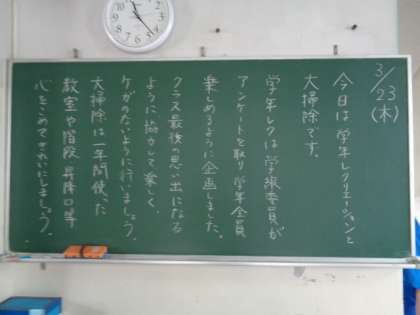 3/23(木)
今日は学年レクリエーションと
大掃除です。
学年レクは学級委員が
アンケートを取り学年全員
楽しめるように企画しました。
クラス最後の思い出になる
ように協力して楽しく、
ケガのないように行いましょう。
大掃除は一年間使った
教室や階段、昇降口等
心をこめてきれいにしましょう。